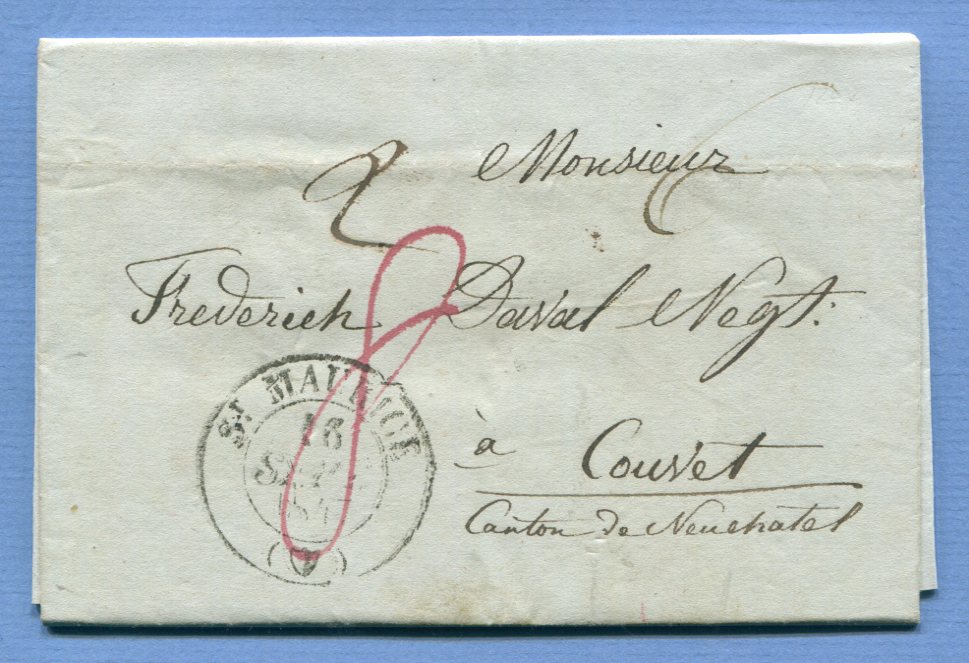 Monsieur
2
8
Frederich Daval Negt.
à Couvet
Canton de Neuchatel
ST MAURICE
16